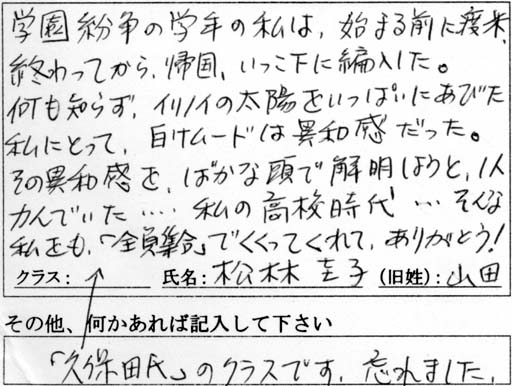 学園紛争の学年の私は、始まる前に渡米、
終わってから、帰国、いっこ下に編入した。
何も知らず、イリノイの太陽をいっぱいにあびた
私にとって、白けムードは異和感だった。
その異和感を、ばかな頭で解明しようと、1人
力んでいた…. 私の高校時代 … そんな
私をも、「全員集合」でくくってくれて、ありがとう!
クラス: 氏名: 松林 圭子 (旧姓): 山田
その他、何かあれば記入して下さい
「久保田氏」のクラスです、忘れました、